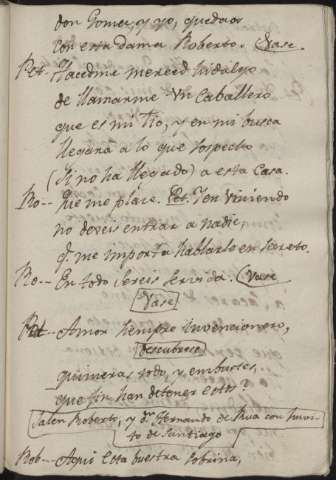 Don Gomez, y yo, quedaos
con esta dama Roberto. Vase.
Pet. Hacedme merced hidalgo
de llamarme Vn Caballero
que es mi tio, y en mi busca
llegará a lo que sospecho
(si no ha llegado) a esta Casa.
Ro-- Que me place. Pet. Y en Viniendo
no deveis entrar a nadie,
q. me importa hablarle en secreto.
Ro-- En todo sereis servida. Vase
Vase
Pet-- Amor siempre invencionero,
descubrese
quimeras todo, y embustes,
que fin han de tener estos?
Salen Roberto, y dn. Fernando de
con havi-
to de Santiago
Rob-- Aqui esta vuestra sobrina,